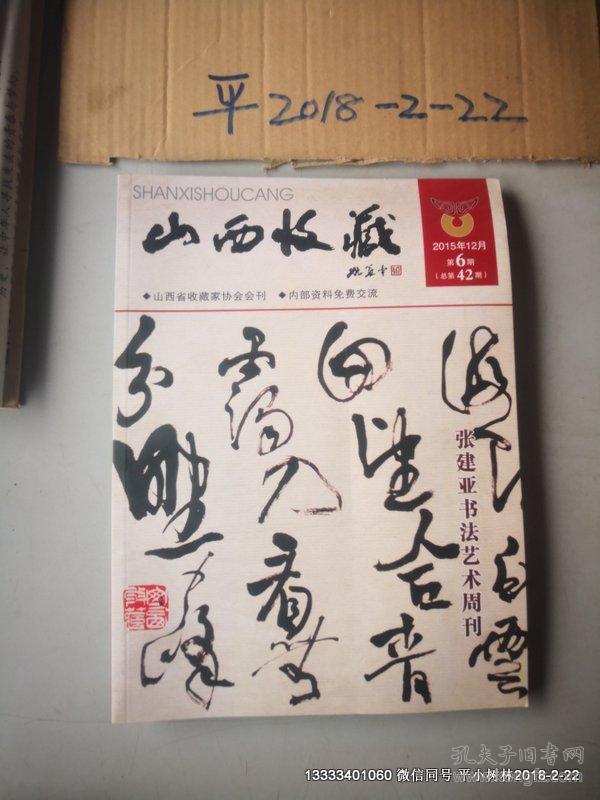 平2018-2-22
SHANXISHOUCANG
山西收藏
2015年12月
第6期
(总第42期)
◆山西省收藏家协会会刊 ◆内部资料免费交流
白云
回望合青
霭入看无
分野中峰
张建亚书法艺术周刊
孔夫子旧书网
13333401060 微信同号 平小树林2018-2-22